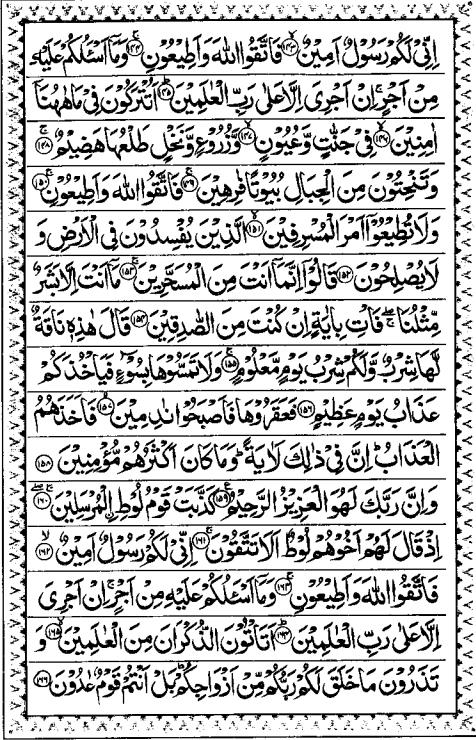 اِنِّیْ لَكُمْ رَسُوْلٌ اَمِیْنٌ ۙ‏﴿۱۴۳﴾ فَاتَّقُوا اللّٰهَ وَاَطِیْعُوْنِ ۚ‏﴿۱۴۴﴾ وَمَاۤ اَسْـَٔلُكُمْ عَلَیْهِ
مِنْ اَجْرٍ ۚ اِنْ اَجْرِیَ اِلَّا عَلٰی رَبِّ الْعٰلَمِیْنَ ؕ‏﴿۱۴۵﴾ اَتُتْرَكُوْنَ فِیْ مَا هٰهُنَاۤ
اٰمِنِیْنَ ۙ‏﴿۱۴۶﴾ فِیْ جَنّٰتٍ وَّعُیُوْنٍ ۙ‏﴿۱۴۷﴾ وَّزُرُوْعٍ وَّنَخْلٍ طَلْعُهَا هَضِیْمٌ ۚ‏﴿۱۴۸﴾
وَتَنْحِتُوْنَ مِنَ الْجِبَالِ بُیُوْتًا فٰرِهِیْنَ ۚ‏﴿۱۴۹﴾ فَاتَّقُوا اللّٰهَ وَاَطِیْعُوْنِ ۚ‏﴿۱۵۰﴾
وَلَا تُطِیْعُوْۤا اَمْرَ الْمُسْرِفِیْنَ ۙ‏﴿۱۵۱﴾ الَّذِیْنَ یُفْسِدُوْنَ فِی الْاَرْضِ وَ
لَا یُصْلِحُوْنَ ﴿۱۵۲﴾ قَالُوْۤا اِنَّمَاۤ اَنْتَ مِنَ الْمُسَحَّرِیْنَ ۚ‏﴿۱۵۳﴾ مَاۤ اَنْتَ اِلَّا بَشَرٌ
مِّثْلُنَا ۚۖ فَاْتِ بِاٰیَةٍ اِنْ كُنْتَ مِنَ الصّٰدِقِیْنَ ﴿۱۵۴﴾ قَالَ هٰذِهٖ نَاقَةٌ
لَّهَا شِرْبٌ وَّلَكُمْ شِرْبُ یَوْمٍ مَّعْلُوْمٍ ۚ‏﴿۱۵۵﴾ وَلَا تَمَسُّوْهَا بِسُوْٓءٍ فَیَاْخُذَكُمْ
عَذَابُ یَوْمٍ عَظِیْمٍ ﴿۱۵۶﴾ فَعَقَرُوْهَا فَاَصْبَحُوْا نٰدِمِیْنَ ۙ‏﴿۱۵۷﴾ فَاَخَذَهُمُ
الْعَذَابُ ؕ اِنَّ فِیْ ذٰلِكَ لَاٰیَةً ؕ وَمَا كَانَ اَكْثَرُهُمْ مُّؤْمِنِیْنَ ﴿۱۵۸﴾
وَاِنَّ رَبَّكَ لَهُوَ الْعَزِیْزُ الرَّحِیْمُ ﴿۱۵۹﴾ كَذَّبَتْ قَوْمُ لُوْطِ ۨالْمُرْسَلِیْنَ ۚۖ‏﴿۱۶۰﴾
اِذْ قَالَ لَهُمْ اَخُوْهُمْ لُوْطٌ اَلَا تَتَّقُوْنَ ۚ‏﴿۱۶۱﴾ اِنِّیْ لَكُمْ رَسُوْلٌ اَمِیْنٌ ۙ‏﴿۱۶۲﴾
فَاتَّقُوا اللّٰهَ وَاَطِیْعُوْنِ ۚ‏﴿۱۶۳﴾ وَمَاۤ اَسْـَٔلُكُمْ عَلَیْهِ مِنْ اَجْرٍ ۚ اِنْ اَجْرِیَ
اِلَّا عَلٰی رَبِّ الْعٰلَمِیْنَ ؕ‏﴿۱۶۴﴾ اَتَاْتُوْنَ الذُّكْرَانَ مِنَ الْعٰلَمِیْنَ ۙ‏﴿۱۶۵﴾ وَ
تَذَرُوْنَ مَا خَلَقَ لَكُمْ رَبُّكُمْ مِّنْ اَزْوَاجِكُمْ ؕ بَلْ اَنْتُمْ قَوْمٌ عٰدُوْنَ ﴿۱۶۶﴾